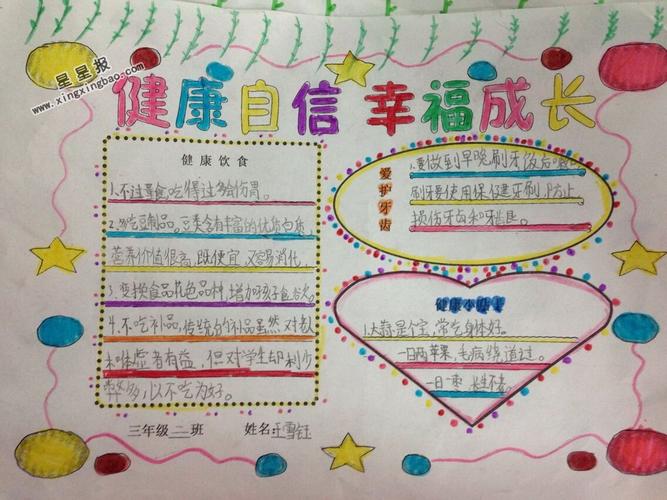 星星报
www.xingxingbao.com
健康自信 幸福成长
健康饮食
1.不过量食,吃得过多会伤胃。
2.多吃豆制品。豆类含有丰富的优质白质,
营养价值很高,既便宜,又容易消化,
3.变换食品花色品料,增加孩子食欠。
4.不吃补品,传统分补品虽然对老
木唯虚者有益,但对学生却利少
弊多,以不吃为好。
三年级二班 姓名:王雪钰
爱护牙齿
1.要做到早晚刷牙饭后
刷牙要使用保健牙刷,防止
损伤牙和牙龈。
健康小
1.大蒜是个宝,常吃身体好。
一日两苹果,毛病绕道过。
一日一枣 长生不老。